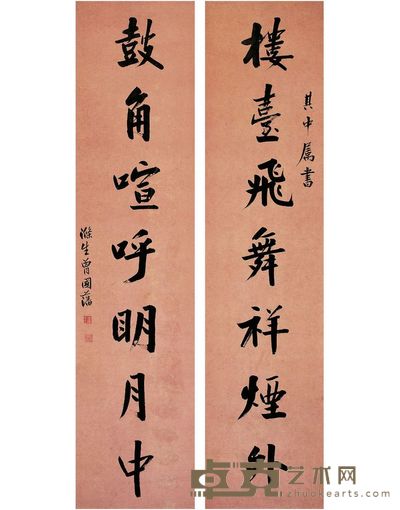 其中屬書
樓臺飛舞祥煙外
鼓角喧呼明月中
滌生曾國藩
卓克艺术网
zhuokearts.com